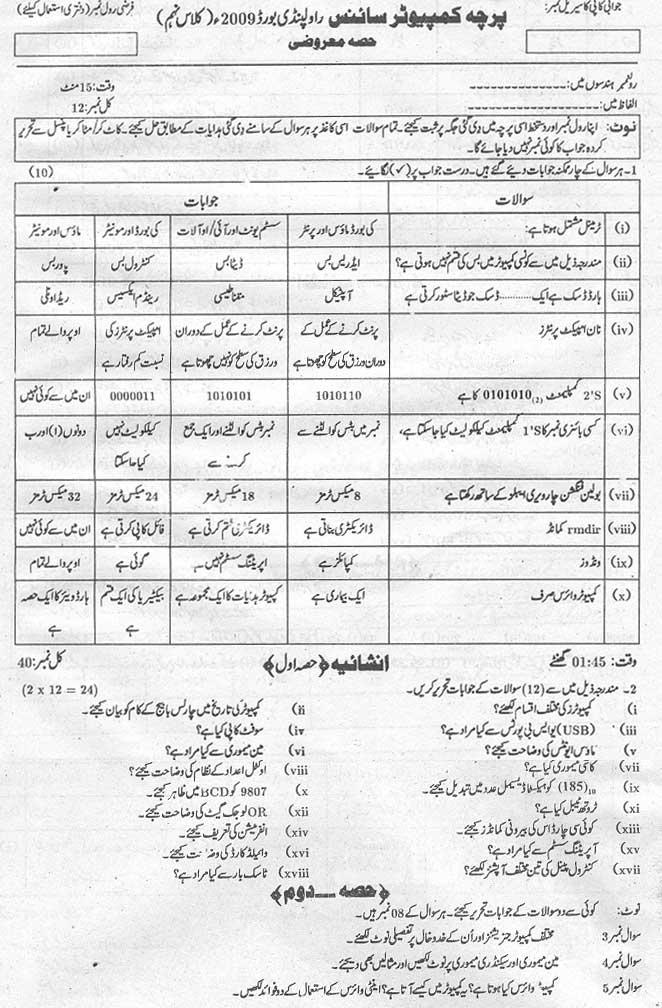 جوابی کاپی کا سیریل نمبر: پرچہ کمپیوٹر سائنس راولپنڈی بورڈ 2009ء (کلاس نہم) فرضی رول نمبر (دفتری استعمال کیلئے)
حصہ معروضی
رولنمبر ہندسوں میں: وقت: 15 منٹ
الفاظ میں: کل نمبر: 12
نوٹ: اپنا رول نمبر اور دستخط اسی پرچہ میں دی گئی جگہ پر ثبت کیجئے۔ تمام سوالات اسی کاغذ پر ہر سوال کے سامنے دی گئی ہدایات کے مطابق حل کیجئے۔ کاٹ کر/مٹا کر یا پنسل سے تحریر
کردہ جواب کا کوئی نمبر نہیں دیا جائے گا۔
1- ہر سوال کے چار ممکنہ جوابات دیئے گئے ہیں۔ درست جواب پر (✓) لگائیے۔ (10)
سوالات جوابات
(i) ٹرمینل مشتمل ہوتا ہے: کی بورڈ ماؤس اور پرنٹر سسٹم یونٹ اور آئی/او آلات کی بورڈ اور مونیٹر ماؤس اور مونیٹر
(ii) مندرجہ ذیل میں سے کونسی کمپیوٹر میں بس کی قسم نہیں ہوتی ہے؟ ایڈریس بس ڈیٹا بس کنٹرول بس پاور بس
(iii) ہارڈ ڈسک ہے ایک............ڈسک جو ڈیٹا سٹور کرتی ہے آپٹیکل مقناطیسی رینڈم ایکسیس ریڈ اونلی
(iv) نان امپیکٹ پرنٹرز پرنٹ کرنے کے عمل کے پرنٹ کرنے کے عمل کے دوران امپیکٹ پرنٹرز کی اوپر والے تمام
دوران ورق کی سطح کو چھوتا ہے ورق کی سطح کو نہیں چھوتا ہے نسبت کم رفتار ہے
(v) 2'S کمپلیمنٹ 0101010(2) کا ہے 1010110 1010101 0000011 ان میں سے کوئی نہیں
(vi) کسی بائنری نمبر کا 1'S کمپلیمنٹ کیلکولیٹ کیا جا سکتا ہے، نمبر میں بٹس کو الٹنے سے نمبر بٹس کو الٹنے اور ایک جمع کیلکولیٹ نہیں دونوں (ا) اور ب
کرنے سے کیا جا سکتا
(vii) بولین فنکشن چار ویری ایبلو کے ساتھ رکھتا ہے 8 میکس ٹرمز 18 میکس ٹرمز 24 میکس ٹرمز 32 میکس ٹرمز
(viii) rmdir کمانڈ ڈائریکٹری بناتی ہے ڈائریکٹری ختم کرتی ہے فائل کاپی کرتی ہے ان میں سے کوئی نہیں
(ix) ونڈوز کمپائلر ہے اپریٹنگ سسٹم نہیں گوئی ہے اوپر والے تمام
(x) کمپیوٹر وائرس صرف ایک بیماری ہے کمپیوٹر ہدایات کا ایک مجموعہ ہے بیکٹیریا کی ایک قسم ہارڈ ویئر کا ایک حصہ
ہے ہے
وقت: 01:45 گھنٹے انشائیہ ﴿حصہ اول﴾ کل نمبر: 40
2- مندرجہ ذیل میں سے (12) سوالات کے جوابات تحریر کریں۔ (2 x 12 = 24)
i کمپیوٹرز کی مختلف اقسام لکھئے؟ ii کمپیوٹر کی تاریخ میں چارلس بابیج کے کام کو بیان کیجئے۔
iii (USB) یو ایس بی پورٹس سے کیا مراد ہے؟ iv سوفٹ کاپی کیا ہے؟
v ماؤس ایونٹس کی وضاحت کیجئے؟ vi مین میموری سے کیا مراد ہے؟
vii کاشی میموری کیا ہے؟ viii اوکٹل اعداد کے نظام کی وضاحت کیجئے؟
ix (185)10 کو ہیکسا ڈیسیمل عدد میں تبدیل کیجئے۔ x 9807 کو BCD میں ظاہر کیجئے۔
xi ٹروتھ ٹیبل کیا ہے؟ xii OR لوجک گیٹ کی وضاحت کیجئے۔
xiii کوئی سی چار ڈاس کی بیرونی کمانڈز کیجئے۔ xiv انفرمیشن کی تعریف کیجئے۔
xv آپریٹنگ سسٹم سے کیا مراد ہے؟ xvi وائیلڈ کارڈ کی وضاحت کیجئے۔
xvii کنٹرول پینل کی تین مختلف آپشنز لکھئے؟ xviii ٹاسک بار سے کیا مراد ہے؟
﴿حصہ دوم﴾
نوٹ: کوئی سے دو سوالات کے جوابات تحریر کیجئے۔ ہر سوال کے 08 نمبر ہیں۔
سوال نمبر 3 مختلف کمپیوٹر جنریشنز اور اُن کے خدوخال پر تفصیلی نوٹ لکھئے۔
سوال نمبر 4 مین میموری اور سیکنڈری میموری پر نوٹ لکھیں اور مثالیں بھی دیجئے۔
سوال نمبر 5 کمپیوٹر وائرس کیا ہوتا ہے؟ یہ کمپیوٹر میں کیسے آتا ہے؟ اینٹی وائرس کے استعمال کے دو فوائد لکھیں۔